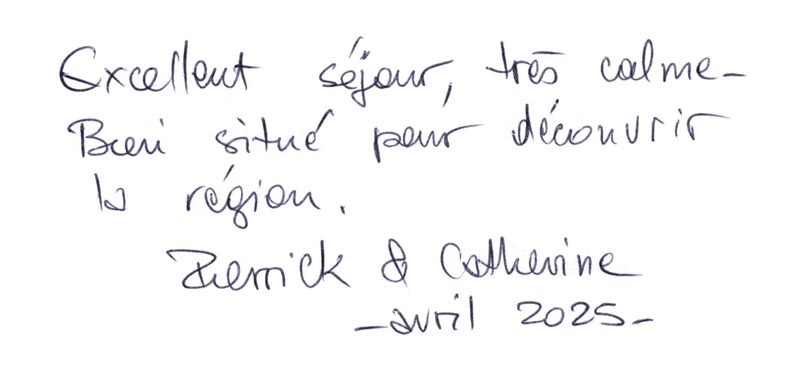 Excellent séjour, très calme -
Bien situé pour découvrir
la région.
Pierrick & Catherine
- avril 2025 -